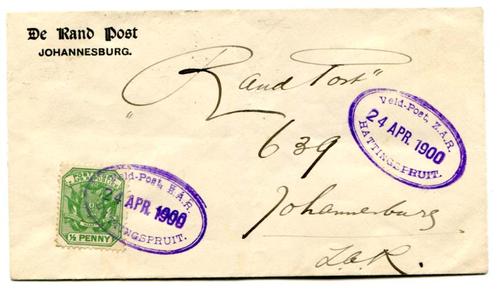 De Rand Post
JOHANNESBURG.
"Rand Post"
639
Johannesburg
Z.A.R.
Veld-Post, Z.A.R.
24 APR. 1900
HATTINGSPRUIT.
Veld-Post, Z.A.R.
24 APR. 1900
HATTINGSPRUIT.
½ PENNY